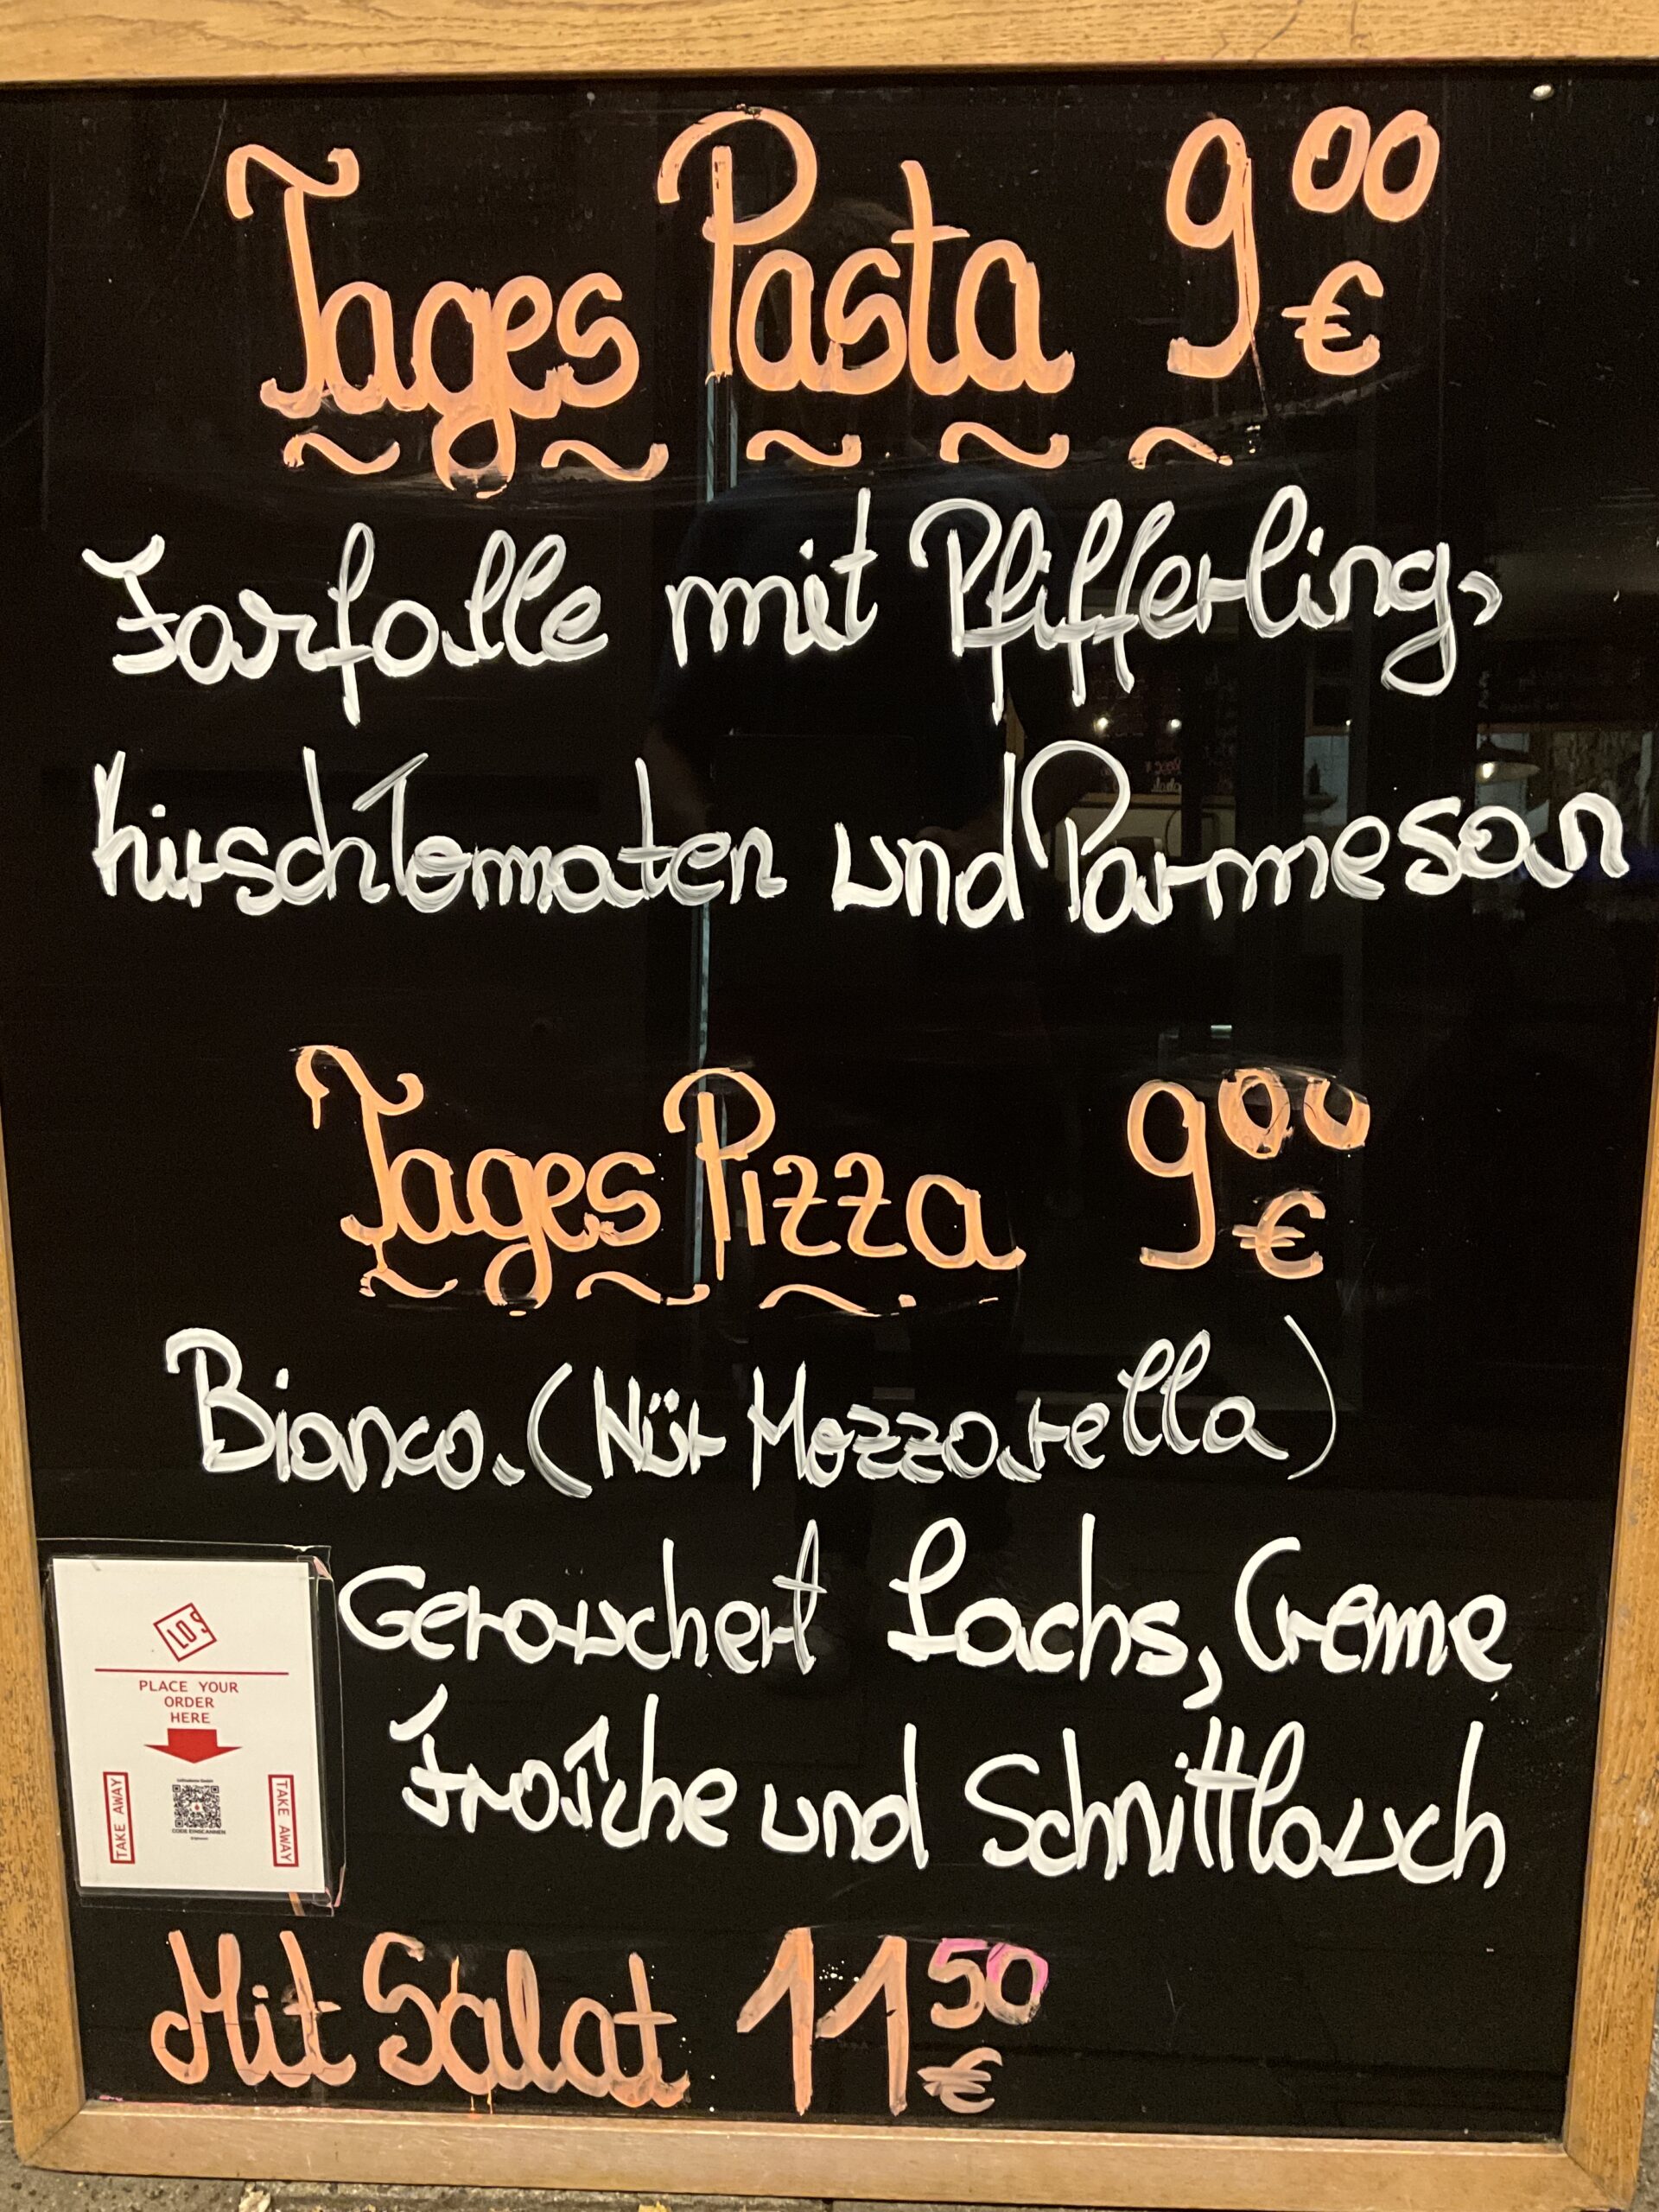 Tages Pasta 9 00 €
Farfalle mit Pfifferling,
kirschTomaten und Parmesan
Tages Pizza 9 00 €
Bianco. (Nür Mozzarella)
Gerauchert Lachs, Creme
Fraîche und Schnittlauch
LOS
PLACE YOUR
ORDER
HERE
TAKE AWAY
CODE EINSCANNEN
TAKE AWAY
Mit Salat 11 50 €